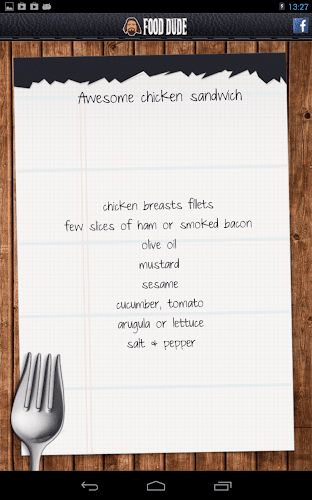 13:27
FOOD DUDE
f
Awesome chicken sandwich
chicken breasts fillets
few slices of ham or smoked bacon
olive oil
mustard
sesame
cucumber, tomato
arugula or lettuce
salt & pepper